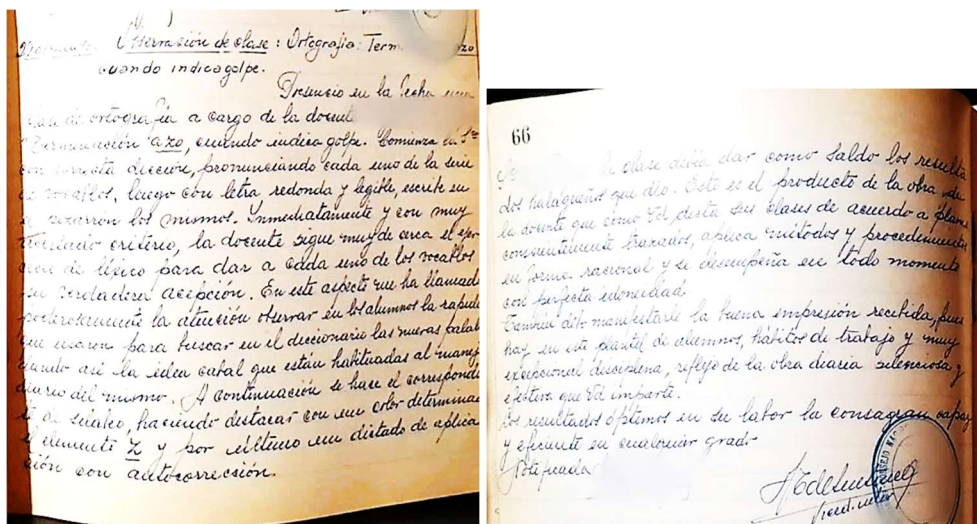 Observación de clase: Ortografía: Term
cuando indica golpe.
Presencio en la fecha una
clase de ortografía a cargo de la docente
"Terminación azo, cuando indica golpe. Comienza la Sra
con correcta dicción, pronunciando cada uno de la serie
de vocablos, luego con letra redonda y legible, escribe en
el pizarrón los mismos. Inmediatamente y con muy
criterio, la docente sigue muy de cerca el
de léxico para dar a cada uno de los vocablos
su verdadera acepción. En este aspecto me ha llamado
poderosamente la atención observar en los alumnos la rapidez
que usaron para buscar en el diccionario las nuevas palab
dando así la idea cabal que están habituadas al manej
diario del mismo. A continuación se hace el correspondi
te de silabeo, haciendo destacar con un color determinad
el elemento Z y por último un dictado de aplica
ción con autocorrección.
66
la clase debía dar como saldo los resulta
dos halagüeños que dio. Esto es el producto de la obra de
la docente que como Vd, dicta sus clases de acuerdo a planes
convenientemente trazados, aplica métodos y procedimientos
en forma racional y se desempeña en todo momento
con perfecta idoneidad.
También debo manifestarle la buena impresión recibida, pues
hay en este plantel de alumnos, hábitos de trabajo y muy
excepcional disciplina, reflejo de la obra diaria silenciosa y
efectiva que Vd imparte.
Los resultados óptimos en su labor la consagran capaz
y eficiente en cualquier grado
Notificada